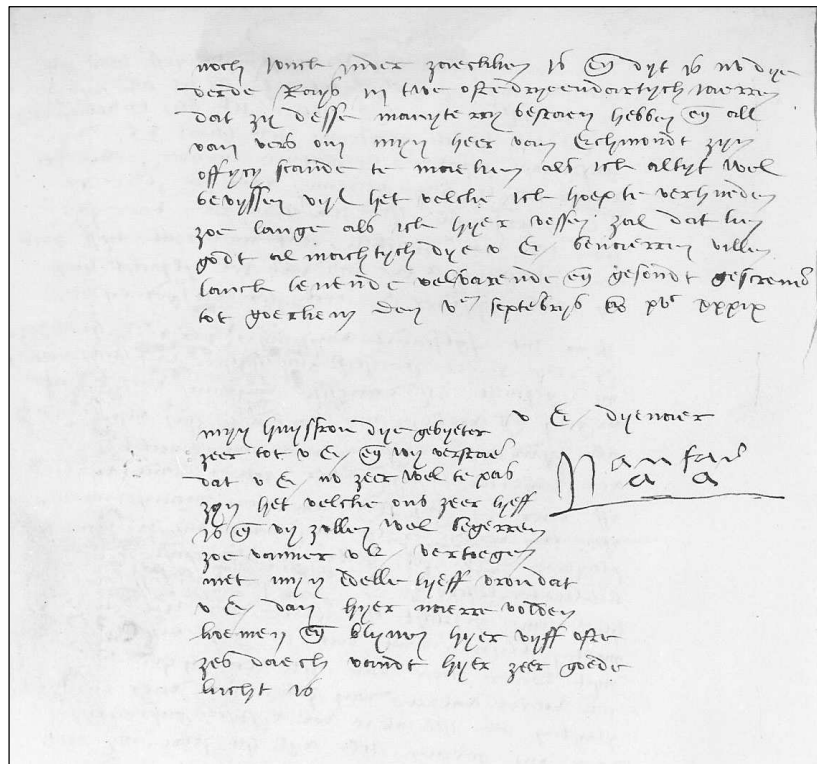 noch jonck inder zaecken is eñ dyt is nv dye
derde Reys in twe ofte dryeendartych iaerren
dat zy desse manyterry bestaen hebben eñ all
van vers om myn heer van Echmondt zyn
offycy scande te maeken als ick altyt wel
bevyssen vyl het velcke ick hoepe te verhueden
zoe lange als ick hyer vessen zal dat ken
godt al machtych dye v E bewaerren villen
lanck levende velvarende eñ gesondt gescreven
tot goerkem den vᵉⁿ septebrys xvᶜ xxxix
v E dyenaer
myn huysfrou dye gebyeter
zeer tot v E eñ wy verstaen
dat v E nv zeer wel te pas
zyn het velcke ons zeer lyeff
is eñ vy zollen wel begerren
zoe vanner v E vertoegen
met myn edelle lyeff vrou dat
v E dan hyer naerre volden
koemen eñ blyven hyer vyff ofte
zes daech vandt hyer zeer goede
lucht is